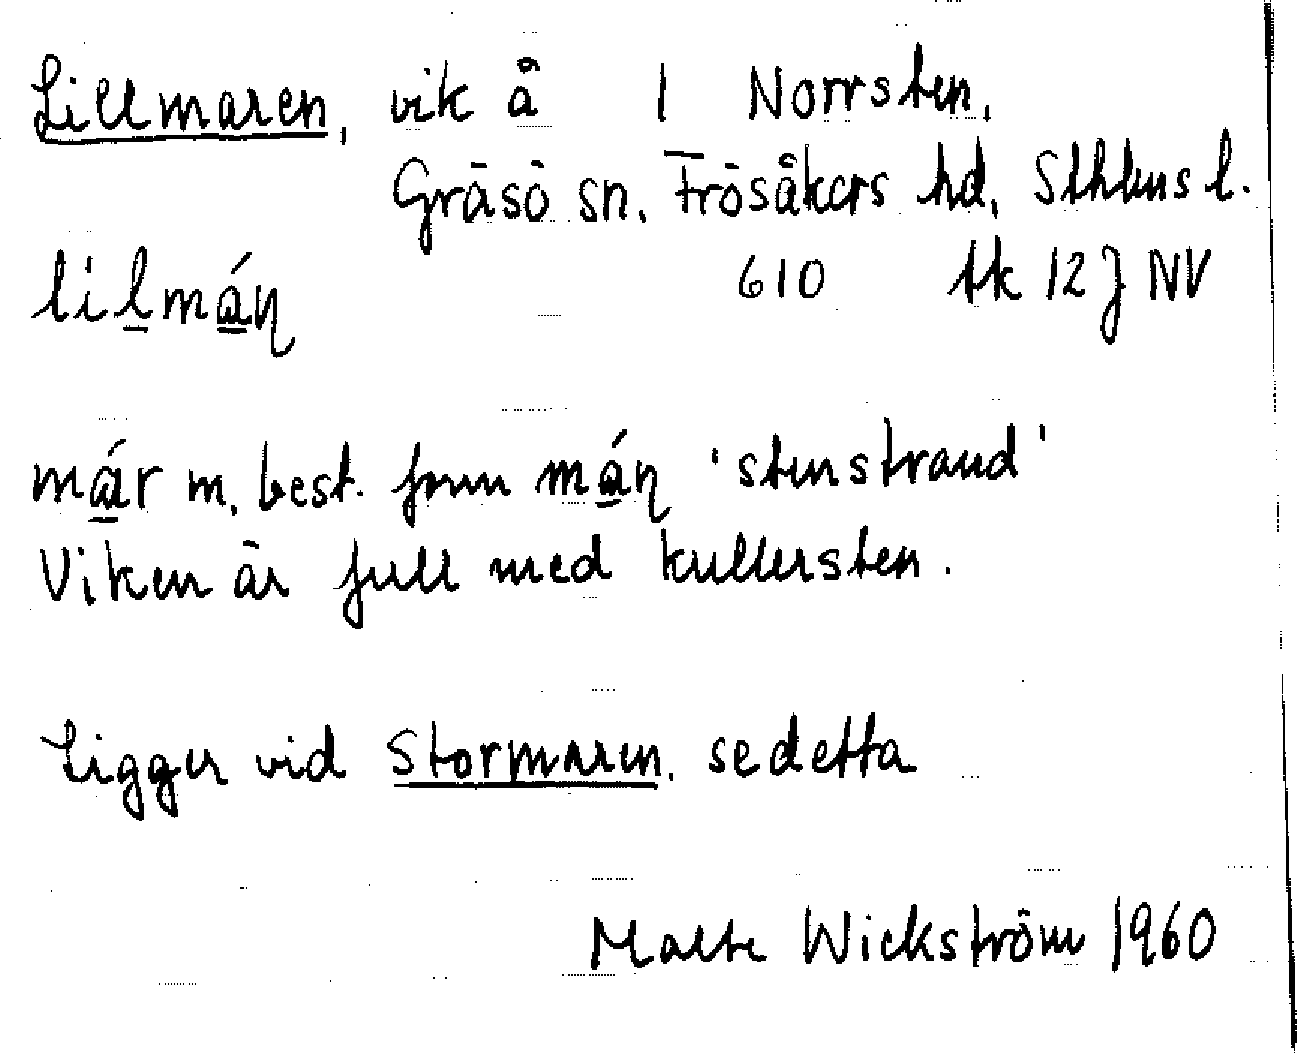 Lillmaren, vik å 1 Norrsten,
Gräsö sn, Frösåkers hd, Sthlms l.
lilmáɳ 610 tk 12 J NV
már m, best. form máɳ 'stenstrand'
Viken är full med kullersten.
Ligger vid Stormaren, se detta
Malte Wickström 1960